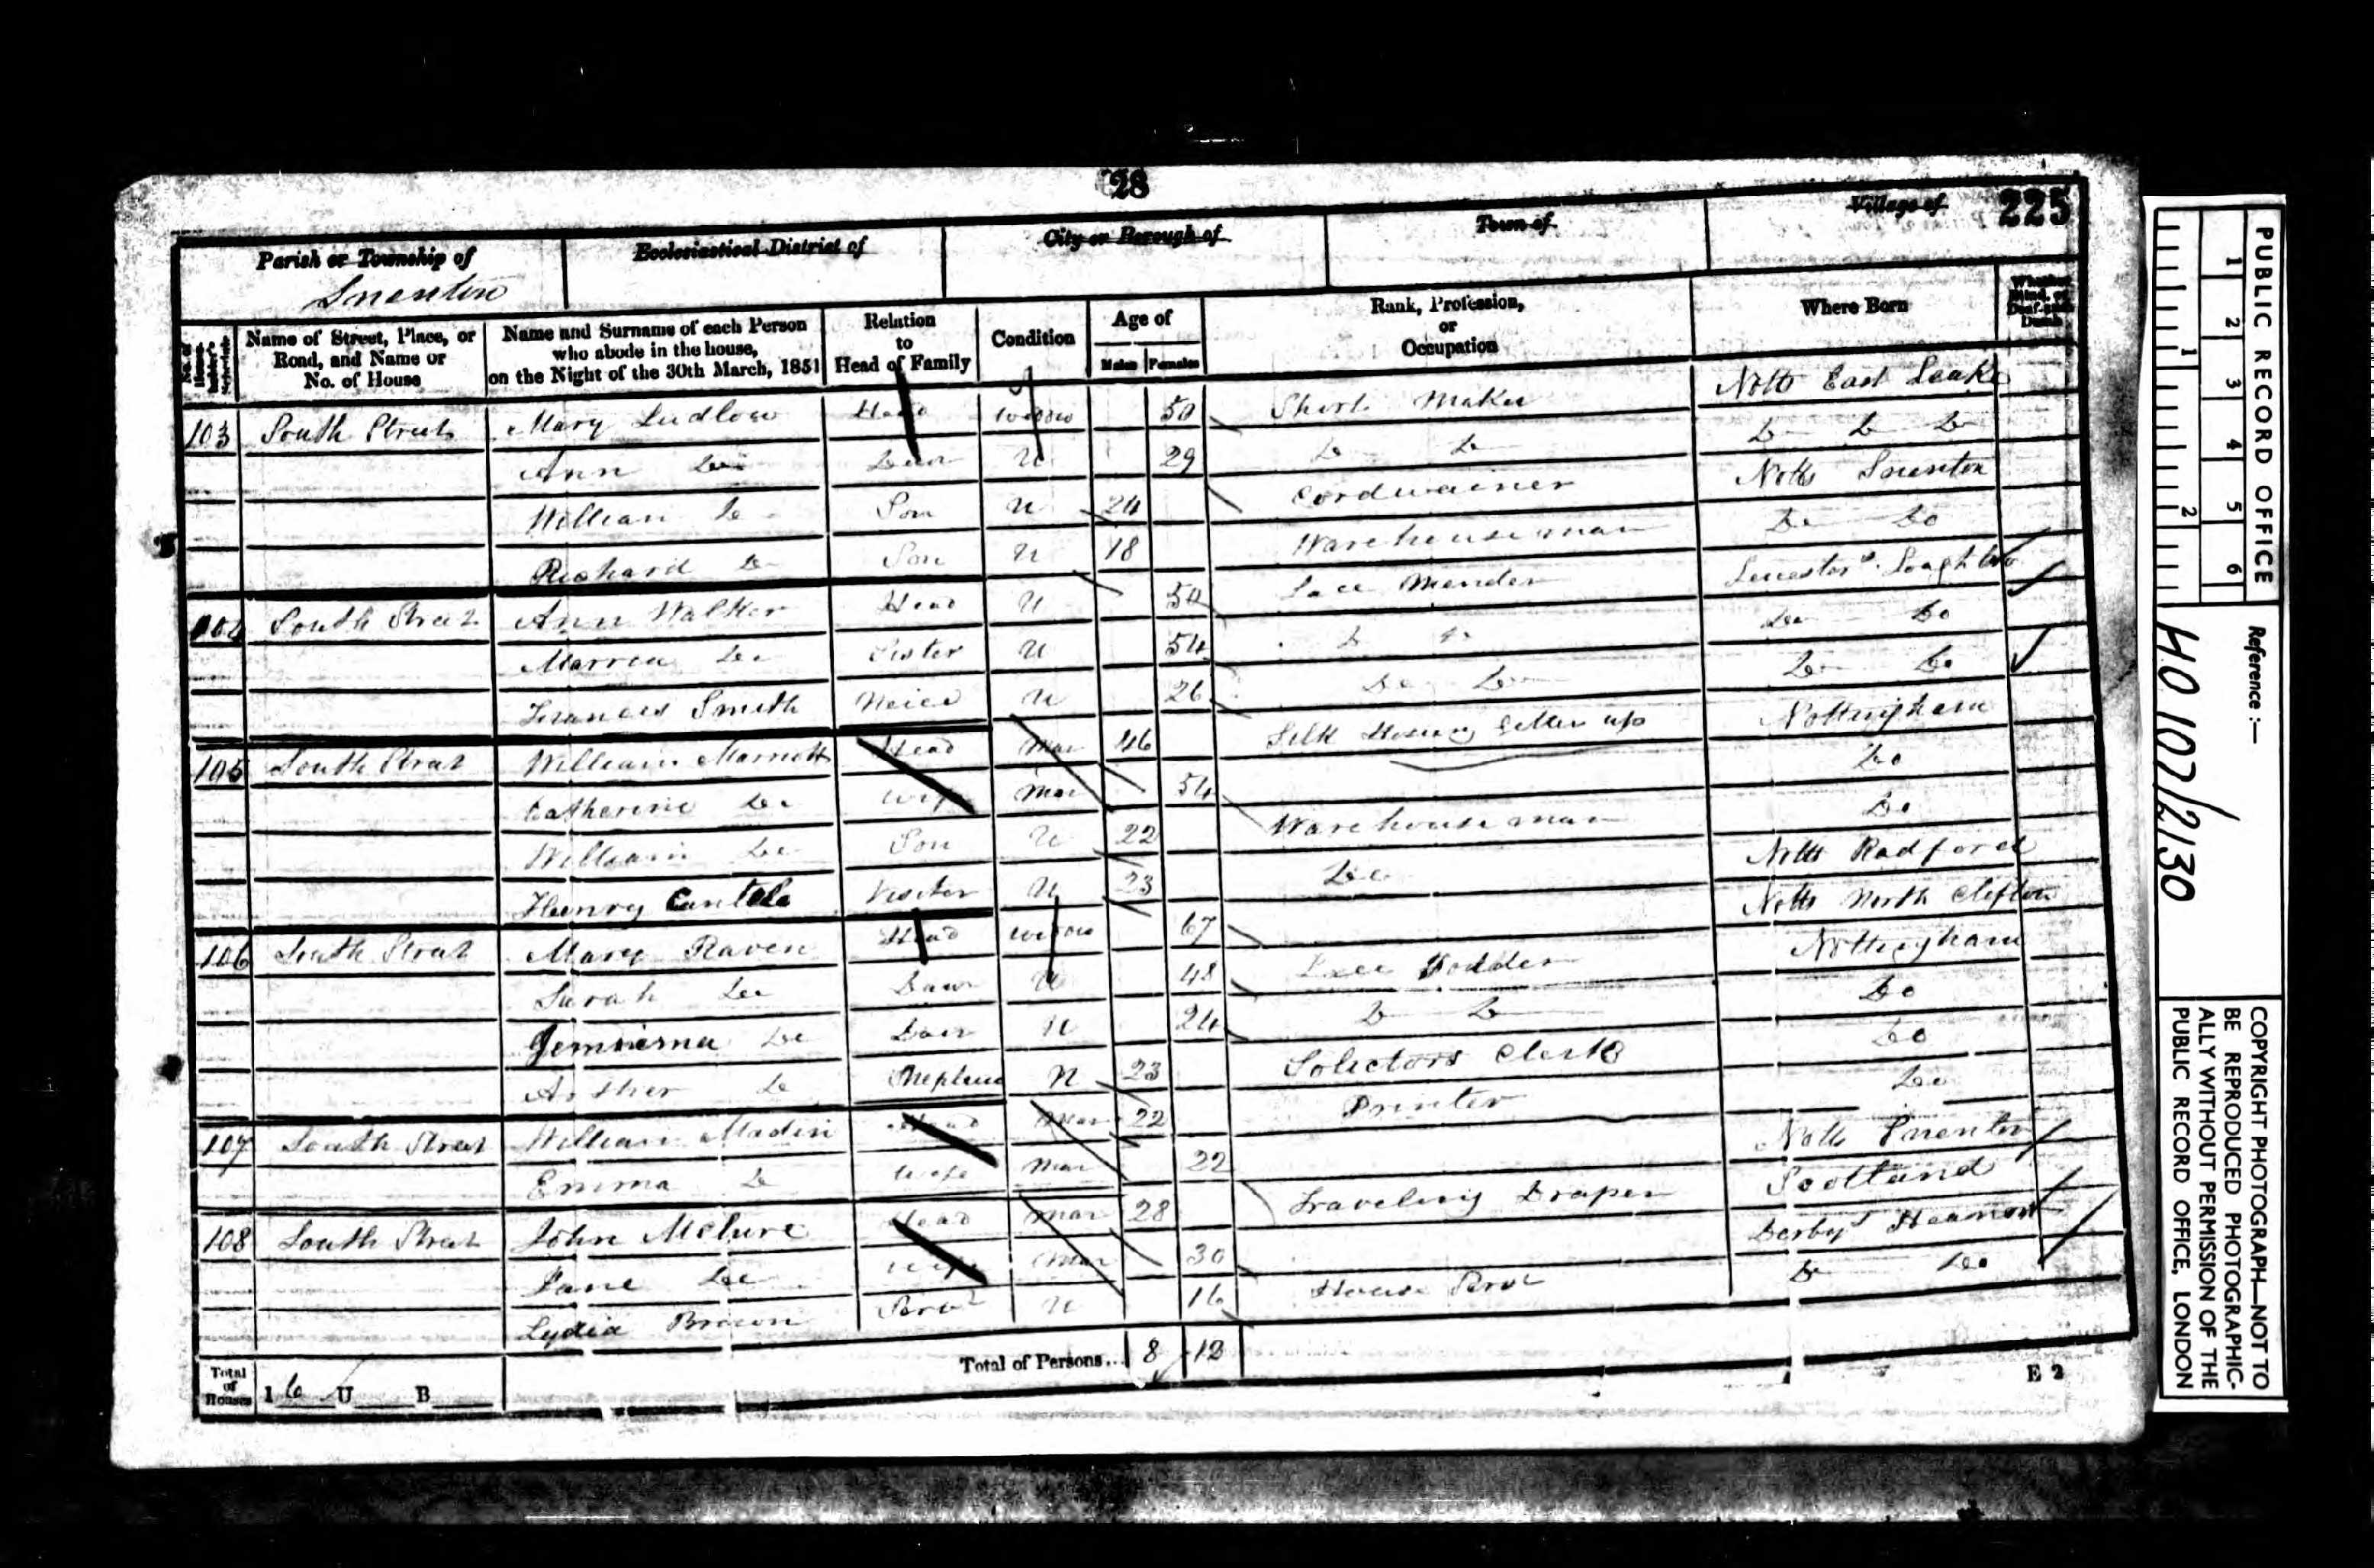 28
225
Parish or Township of Ecclesiastical District of City or Borough of Town of Village of
Snenton
No. of House-holder's Schedule
Name of Street, Place, or Road, and Name or No. of House
Name and Surname of each Person who abode in the house, on the Night of the 30th March, 1851
Relation to Head of Family
Condition
Age of
Males Females
Rank, Profession, or Occupation
Where Born
Whether Blind, or Deaf-and-Dumb
103 South Street Mary Ludlow Head Widow 50 Shirt Maker Notts East Leake
Ann Do Daur U 29 Do Do Do Do Do
William Do Son U 24 Cordwainer Notts Snenton
Richard Do Son U 18 Warehouseman Do Do
104 South Street Ann Walker Head U 54 Lace Mender Leicesters Loughbro
Marria Do Sister U 54 Do Do Do Do
Frances Smith Neice U 26 Do Do Do Do
105 South Street William Marriott Head Mar 46 Silk Hosiery Getter up Nottingham
Catherine Do Wife Mar 54 Do
William Do Son U 22 Warehouseman Do
Henry Cantele Visitor U 23 Do Notts Radford
106 South Street Mary Raven Head Widow 67 Notts North Clifton
Sarah Do Daur U 48 Lace Nottingham
Jemmima Do Daur U 24 Do Do Do
Arther Do Nephew U 23 Solicitors Clerk Do
107 South Street William Madin Head Mar 22 Printer Do
Emma Do Wife Mar 22 Notts Snenton
108 South Street John Mclure Head Mar 28 Traveling Draper Scotland
Jane Do Wife Mar 30 Derbys Heanor
Lydia Brown Servt U 16 House Servt Do Do
Total of Houses I 6 U B Total of Persons... 8 12
E 2
PUBLIC RECORD OFFICE
1 2 3 4 5 6
1 2
Reference :-
HO 107/2130
COPYRIGHT PHOTOGRAPH—NOT TO
BE REPRODUCED PHOTOGRAPHIC-
ALLY WITHOUT PERMISSION OF THE
PUBLIC RECORD OFFICE, LONDON